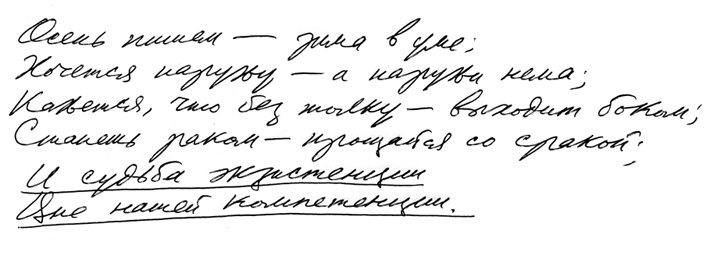 Осень пишем — зима в уме;
Хочется наружу — а наружи нема;
Кажется, что без толку — выходит боком;
Станешь раком — прощайся со сракой;
И судьба экзистенции
Вне нашей компетенции.